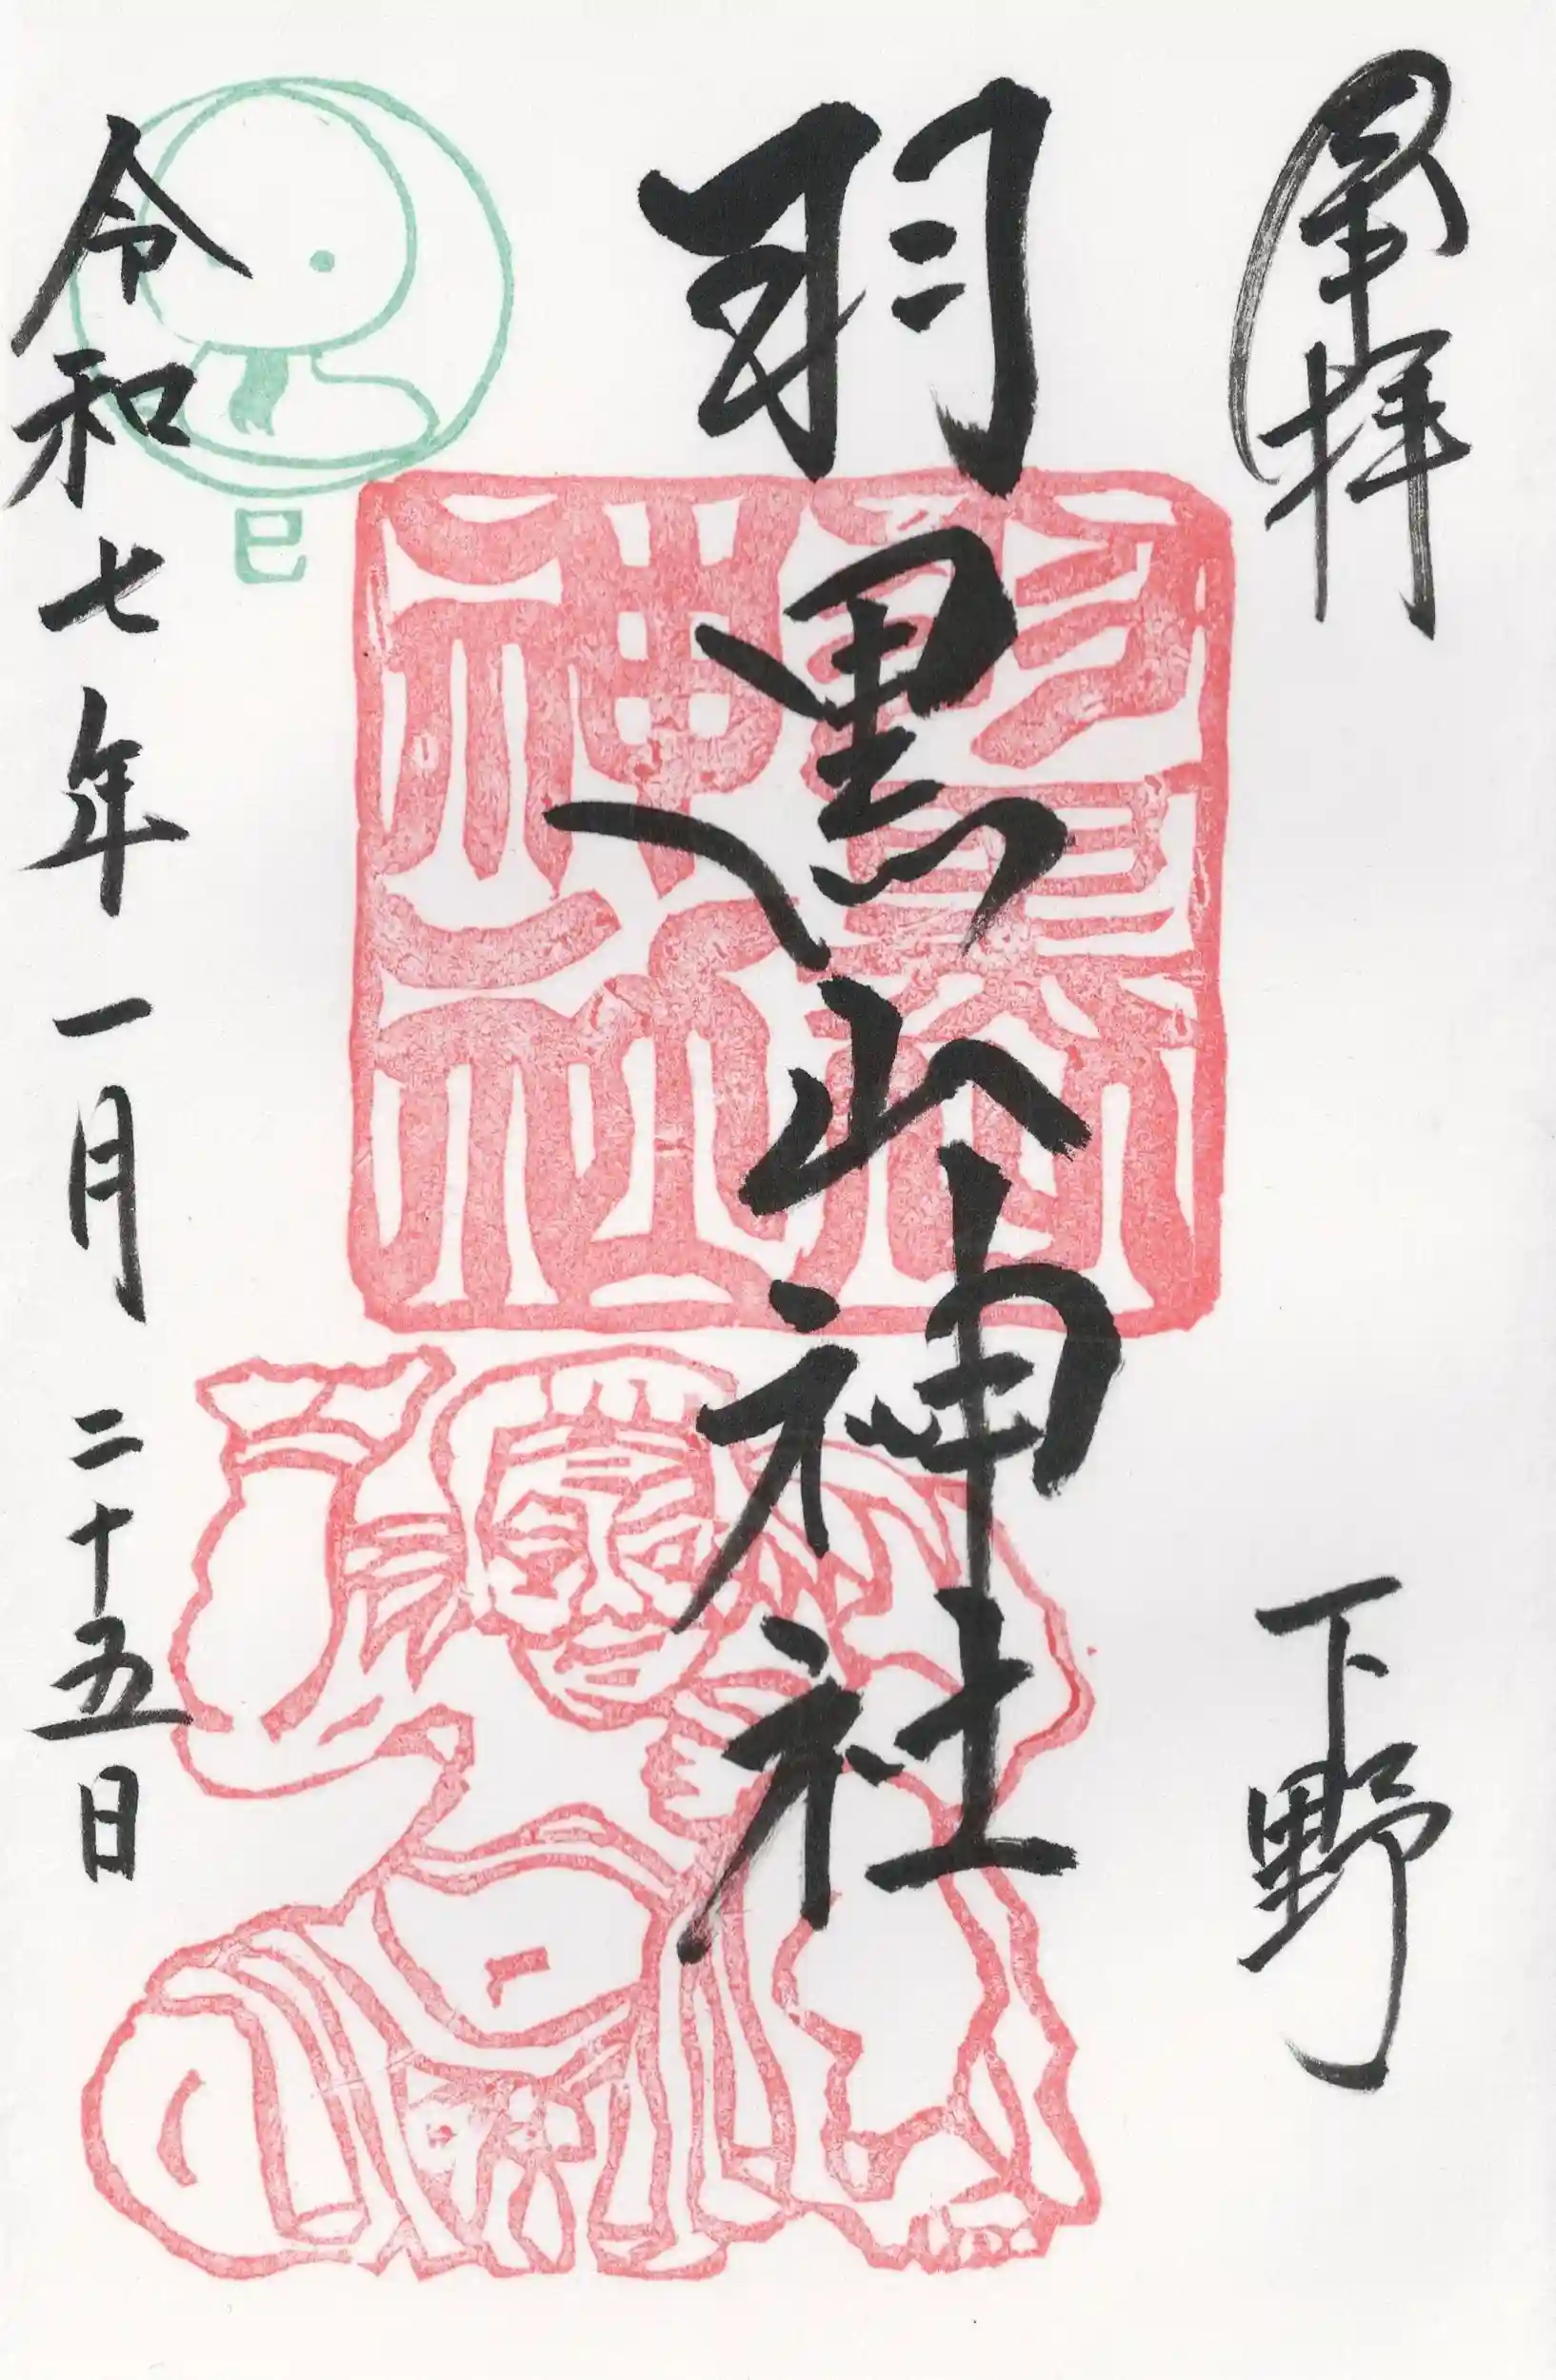 奉拝
下野
羽黒山神社
神社
令和七年一月二十五日
巳